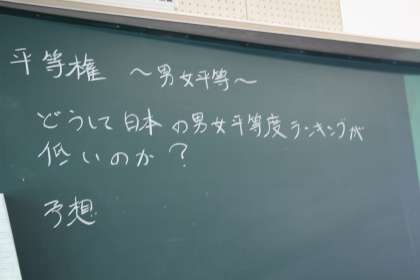 平等権 ～男女平等～
どうして日本の男女平等度ランキングが
低いのか？
予想